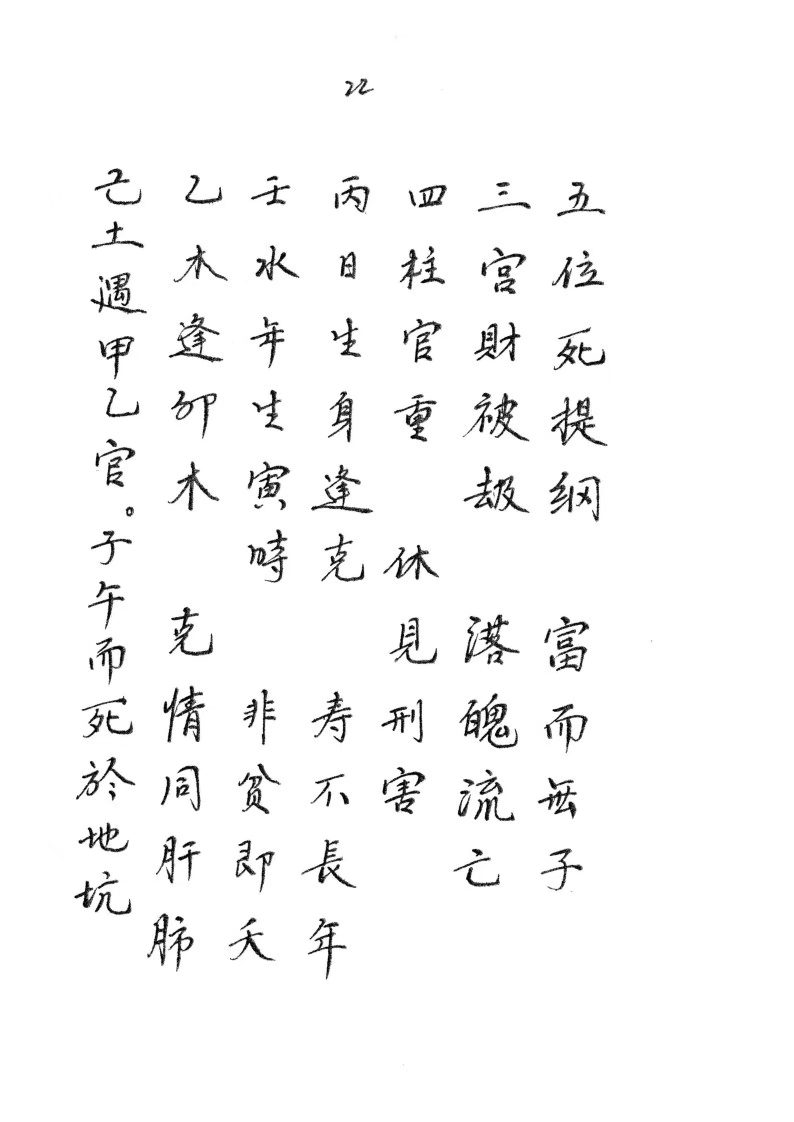 22
五位死提纲 富而無子
三宫財被刼 落魄流亡
四柱官重 休見刑害
丙日生身逢克 寿不長年
壬水年生寅時 非貧即夭
乙木逢卯木 克情同肝肺
己土遇甲乙官。子午而死於地坑